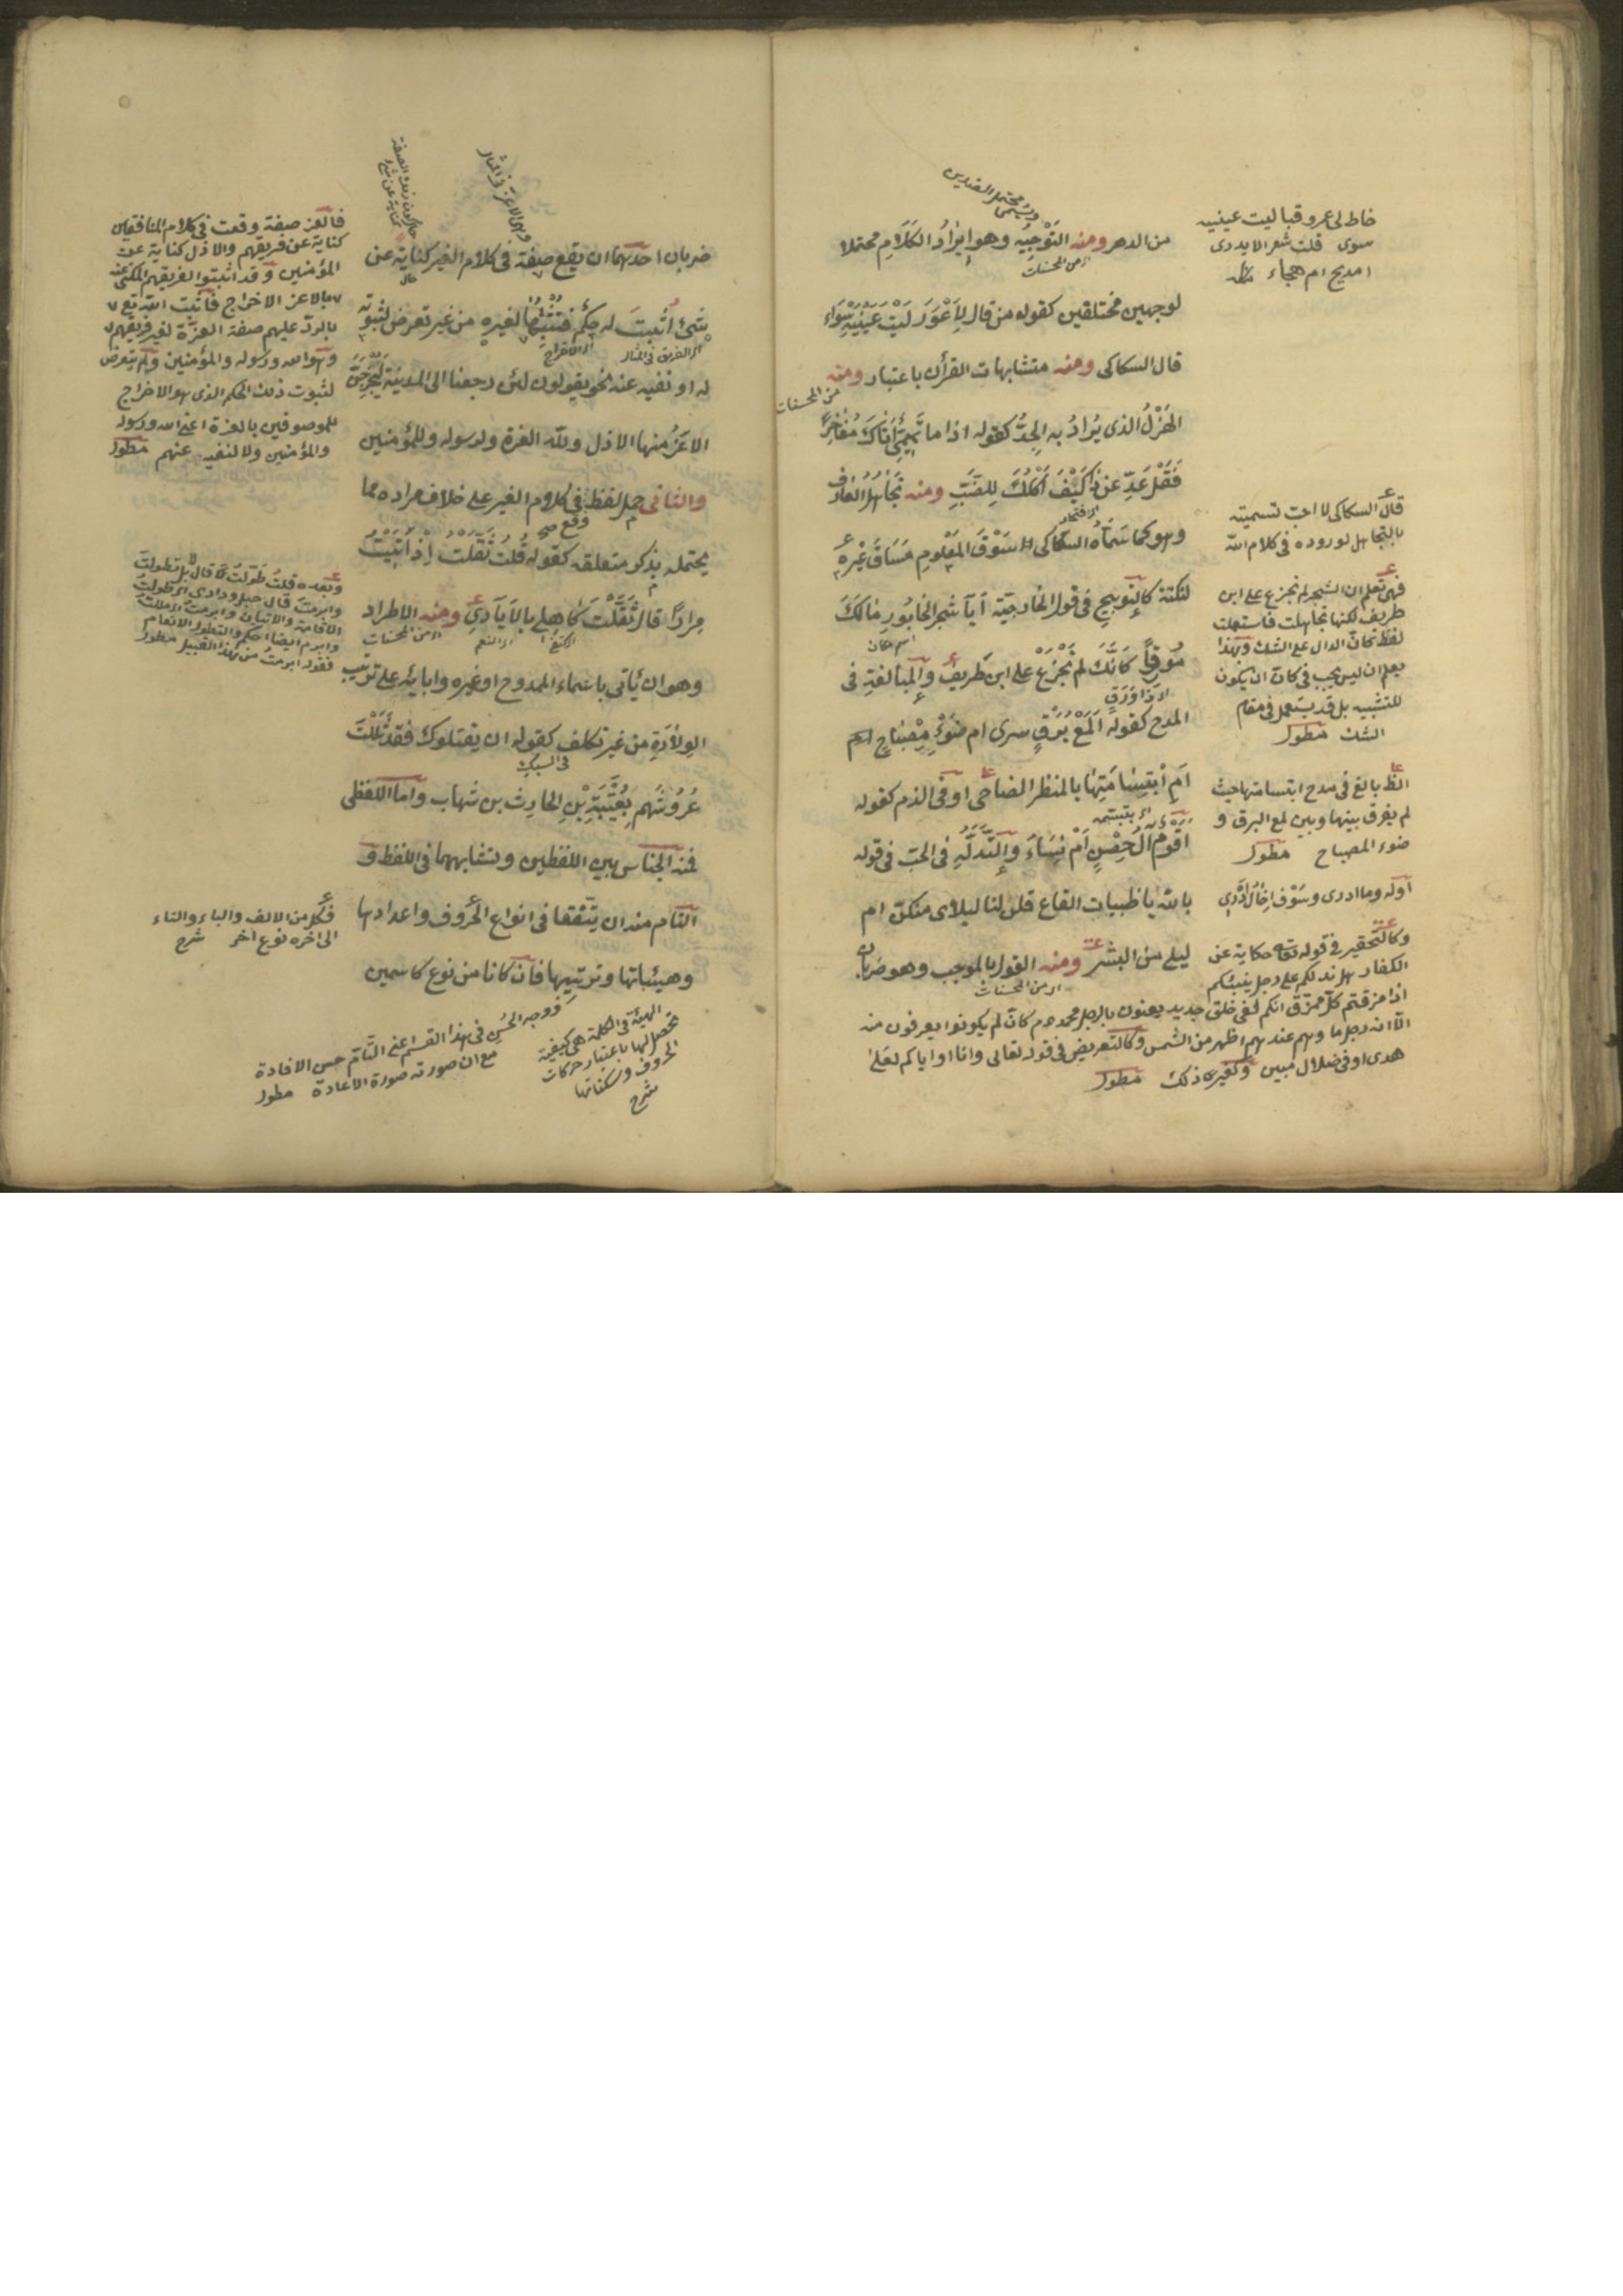 من الدهر ومنه التوجيه وهو ايراد الكلام محتملا
لوجهين مختلفين كقوله من قال لاعور ليت عينيه سواء
قال السكاكى ومنه متشابهات القرأن باعتبار ومنه
الهزل الذى يراد به الجد كقوله اذا ما تميمى اتاك مفاخرا
فقل عد عن ذا كيف اكلك للضب ومنه تجاهل العارف
وهو كما سماه السكاكى سوق المعلوم مساق غيره
لنكتة كالتوبيخ فى قول الخارجية ايا شجر الخابور مالك
مورقا كانك لم تجزع على ابن طريف والمبالغة فى
المدح كقوله المع برق سرى ام ضوء مصباح
ام ابتسامتها بالمنظر الضاحى او فى الذم كقوله
اقوم آل حصن ام نساء والتدله فى الحب فى قوله
بالله يا ظبيات القاع قلن لنا ليلاى منكن ام
ليلى من البشر ومنه القول بالموجب وهو ضربان
ويسمى محتمل الضدين
اى من المحسنات
من المحسنات
اسم مكان
اى ذا ورق
اى من المحسنات
خاط لى عمرو قبا ليت عينيه
سوى قلت شعر الا يدرى
امديح ام هجاء
قال السكاكى لا احب تسميته
بالتجاهل لوروده فى كلام الله
فهى تعلم ان الشجر لم تجزع على ابن
طريف لكنها تجاهلت فاستعملت
لفظ كان الدال على الشك وبهذا
يعلم ان ليس يجب فى كان ان يكون
للتشبيه بل قد يستعمل فى مقام
الشك مطول
بالغ فى مدح ابتسامتها حيث
لم يفرق بينها وبين لمع البرق و
ضوء المصباح مطول
اوله وما ادرى وسوف اخال ادرى
وكالتحقير فى قوله تعالى حكاية عن
الكفار هل ندلكم على رجل ينبئكم
اذا مزقتم كل ممزق انكم لفى خلق جديد يعنون بالرجل محمد عم كان لم يكونوا يعرفون منه
الا انه رجل ما وهم عندهم اظهر من الشمس وكالتعريض فى قوله تعالى وانا او اياكم لعلى
هدى او فى ضلال مبين وكغير ذلك مطول
ضربان احدهما ان يقع صفة فى كلام الغير كناية عن
شئ اثبت له حكم فتثبتها لغيره من غير تعرض لثبوته
له او نفيه عنه نحو يقولون لئن رجعنا الى المدينة ليخرجن
الاعز منها الاذل ولله العزة ولرسوله وللمؤمنين
والثانى حمل لفظ فى كلام الغير على خلاف مراده مما
يحتمله بذكر متعلقه كقوله قلت ثقلت اذ اتيت
مرارا قال ثقلت كاهلى بالايادى ومنه الاطراد
وهو ان يأتى باسماء الممدوح او غيره وابائه على ترتيب
الولادة من غير تكلف كقوله ان يقتلوك فقد ثللت
عروشهم بعتيبة بن الحارث بن شهاب واما اللفظى
فمنه الجناس بين اللفظين وتشابههما فى اللفظ و
التام منه ان يتفقا فى انواع الحروف واعدادها
وهيئباتها وترتيبها فان كانا من نوع كاسمين
وهى الاعز فى المثال
اى الفريق فى المثال
اى الاخراج
وقع صح
اى النعم
اى من المحسنات
فى السبك
فالاعز صفة وقعت فى كلام المنافقين
كناية عن فريقهم والاذل كناية عن
المؤمنين وقد اثبتوا لفريقهم المكنى عنه
بالاعز الاخراج فاثبت الله تع
بالرد عليهم صفة العزة لغير فريقهم
وهو الله ورسوله والمؤمنين ولم يتعرض
لثبوت ذلك الحكم الذى هو الاخراج
للموصوفين بالعزة اعنى الله ورسوله
والمؤمنين ولا لنفيه عنهم مطول
وبعده قلت طولت قال لا بل تطولت
وابرمت قال حبل ودادى اى طولت
الاقامة والاتيان وابرمت اى مللت
وابرم ايضا احكم والتطول الانعام
فقوله ابرمت من هذا القبيل مطول
فكل من الالف والباء والتاء
الى اخره نوع اخر شرح
الهيئة فى الكلمة هى كيفية
تحصل لها باعتبار حركات
الحروف وسكناتها
شرح
ووجه الحسن فى هذا القسم اعنى التام حسن الافادة
مع ان صورته صورة الاعادة مطول